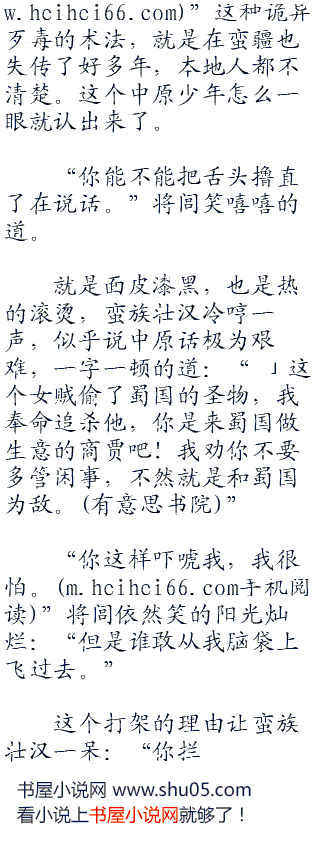 w.hcihci66.com)”这种诡异
歹毒的术法，就是在蛮疆也
失传了好多年，本地人都不
清楚。这个中原少年怎么一
眼就认出来了。
“你能不能把舌头撸直
了在说话。”将闾笑嘻嘻的
道。
就是面皮漆黑，也是热
的滚烫，蛮族壮汉冷哼一
声，似乎说中原话极为艰
难，一字一顿的道：“ 」这
个女贼偷了蜀国的圣物，我
奉命追杀他，你是来蜀国做
生意的商贾吧！我劝你不要
多管闲事，不然就是和蜀国
为敌。(有意思书院)”
“你这样吓唬我，我很
怕。(m.hcihci66.com手机阅
读)”将闾依然笑的阳光灿
烂：“但是谁敢从我脑袋上
飞过去。”
这个打架的理由让蛮族
壮汉一呆：“你拦
书屋小说网 www.shu05.com
看小说上书屋小说网就够了！